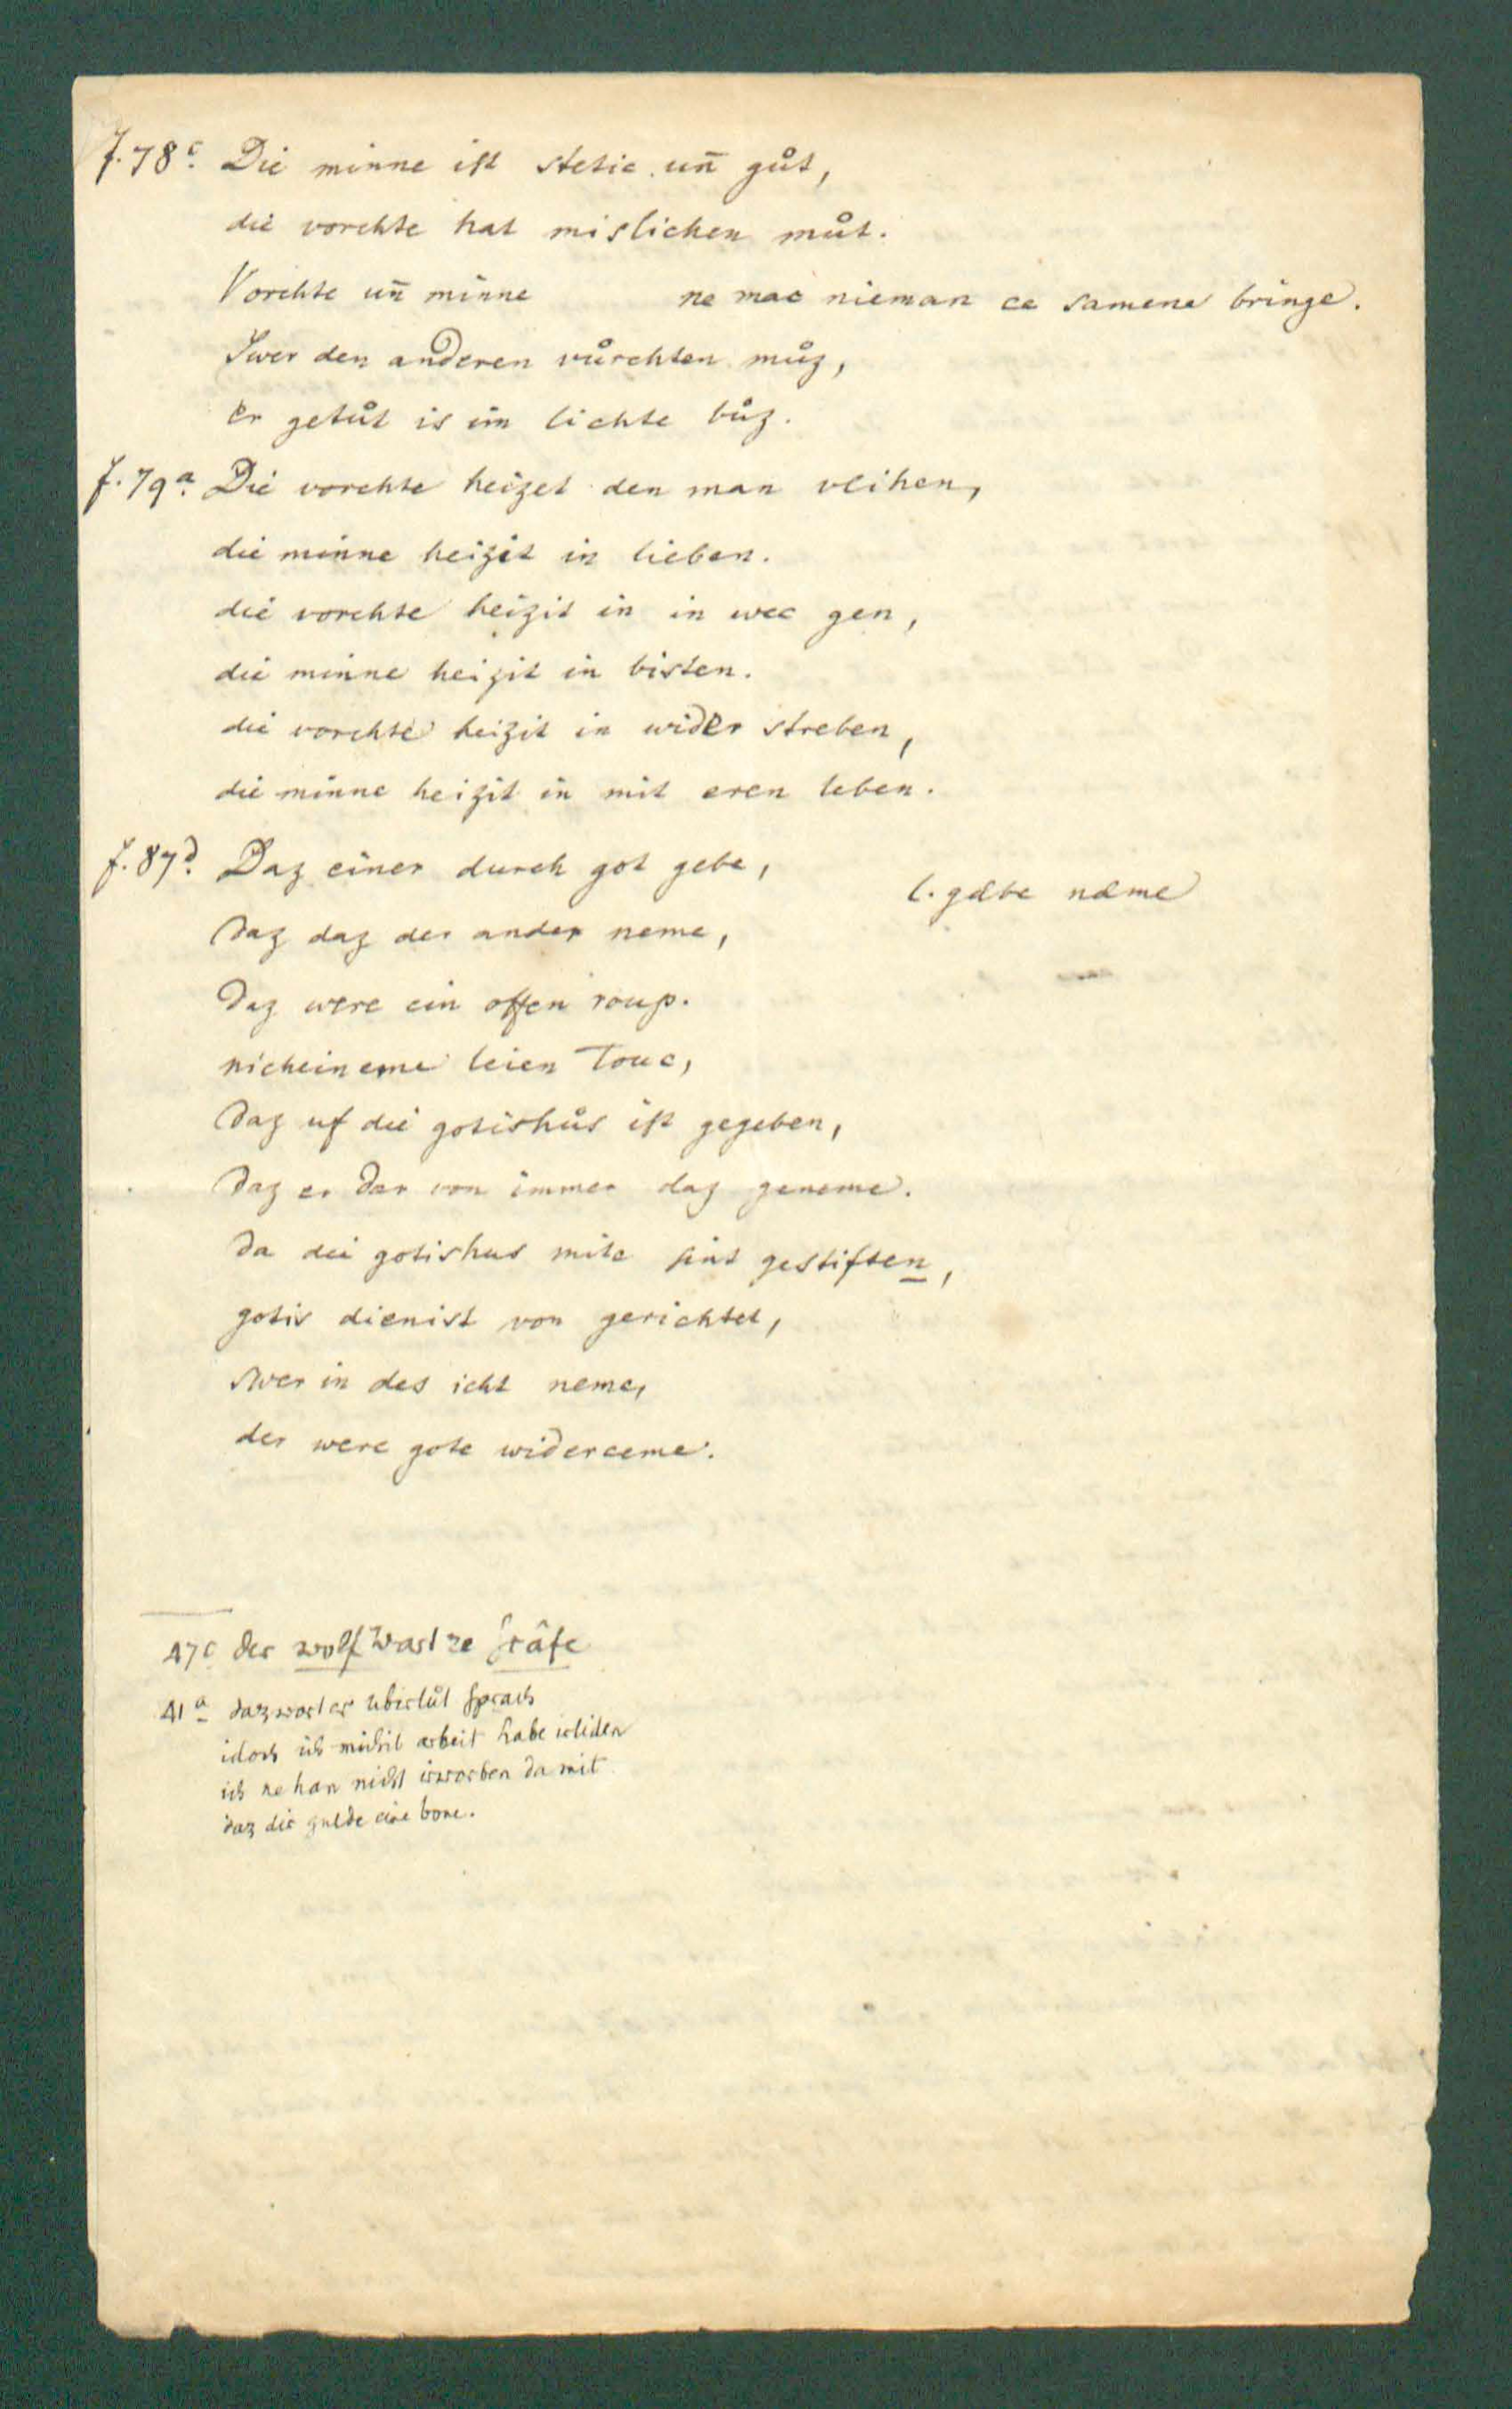 f. 78c. Die minne ist stetic uñ gůt,
die vorchte hat mislichen můt.
Vorchte uñ minne ne mac nieman ce samene bringe.
Swer den anderen vůrchten můz,
er getůt is im lichte bůz.
f. 79a. Die vorchte heizet den man vlihen,
die minne heizit in lieben.
die vorchte heizit in in wec gen,
die minne heizit in bisten.
die vorchte heizit in wider streben,
die minne heizit in mit eren leben.
f. 87d. Daz einer durch got gebe,
l. gæbe næme
daz daz der ander neme,
daz were ein offen roup.
nicheineme leien touc,
daz uf die gotishůs ist gegeben,
daz er dar von immer daz geneme.
da dei gotishus mite sint gestiften,
gotis dienist von gerichtet,
swer in des icht neme,
der were gote widerceme.
47c der wolf wart ze gräfe
41a daz wort er ubirlůt sprach
idoch ich michil arbeit habe irliden
ich ne han nicht irworben da mit
daz dir gulde eine bone.